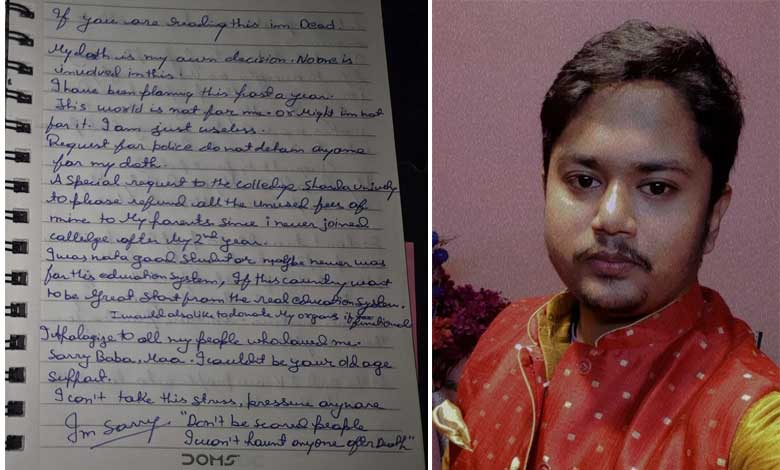 If you are reading this im Dead.
My deth is my own decision. No one is
invovled in this.
I have been planning this past a year.
This world is not for me. or Might im not
for it. I am just useless.
Request for police do not detain anyone
for my deth.
A special request to the colledge Sharda
to please refund all the unused fees of
mine to My parents since i never joined
colledge after My 2nd year.
I was not a good student or maybe never was
for this education system, If this country want
to be Great. Start from the real education System.
I would also like to donate My organs if functional
I Apologize to all my people who loved me.
Sorry Baba. Maa. I couldn't be your old age
Suppart.
I can't take this stress, pressure anymore
Im Sorry "Don't be scared people
I won't haunt anyone after Death"
DOMS